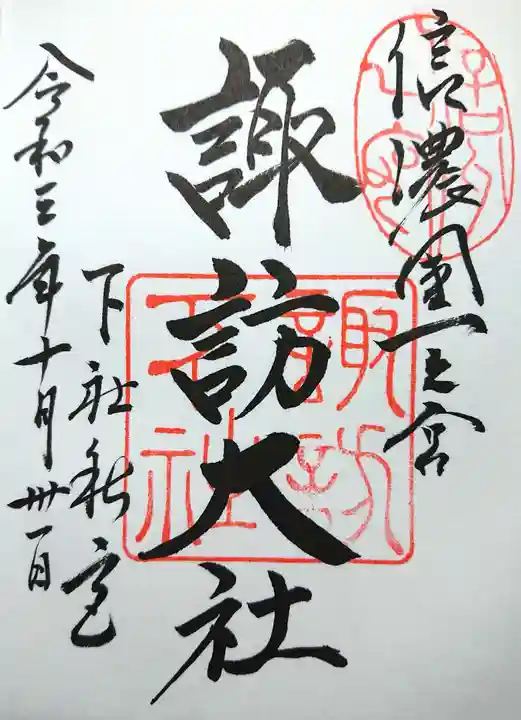 信濃國一之宮
諏訪大社
下社秋宮
令和三年十月卅一日
諏訪
下社